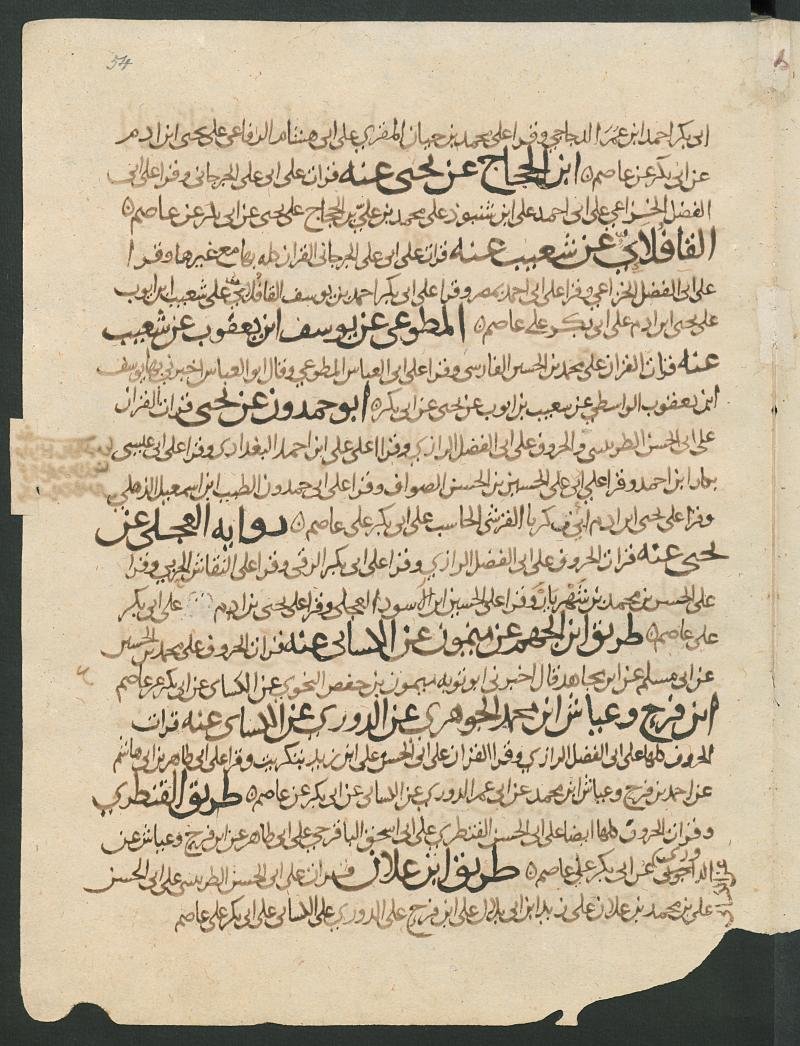 54
ابى بكر احمد ابن عمر الدجاجي وقرا على محمد بن حيان المقري على ابى هشام الرفاعي على يحيى ابن ادم
عن ابى بكر عن عاصم ابن الحجاج عن يحيى عنه قرات على ابى على الجرجانى وقرا على ابى
الفضل الخزاعي على ابى احمد على ابن شنبوذ على محمد بن علي بن الحجاج على يحيى عن ابى بكر عن عاصم
القافلاي عن شعيب عنه قرات على ابى على الجرجانى القران كله بها مع غيرها وقرا
على ابى الفضل الخزاعي وقرا على ابى احمد بمصر وقرا على ابى بكر احمد بن يوسف القافلاي على شعيب ابن ايوب
على يحيى ابن ادم على ابى بكر على عاصم المطوعى عن يوسف ابن يعقوب عن شعيب
عنه قرات القران على محمد بن الحسين الفارسى وقرا على ابى العباس المطوعي وقال ابو العباس اخبرني بها يوسف
ابن يعقوب الواسطي عن شعيب بن ايوب عن يحيى عن ابى بكر ابو حمدون عن يحيى قرات القران
على ابى الحسن الطريثيثى والحروف على ابى الفضل الرازي وقرا على على ابن احمد البغدادي وقرا على ابى عيسى
بكار ابن احمد وقرا على ابى على الحسين بن الحسن الصواف وقرا على ابى حمدون الطيب ابن اسمعيل الذهلي
وقرا على يحيى ابن ادم ابى زكريا القرشى الحاسب على ابى بكر على عاصم رواية العجلى عن
يحيى عنه قرات الحروف على ابى الفضل الرازي وقرا على ابى بكر الرقى وقرا على النقاش الحربي وقرا
على الحسن بن محمد بن شهريار وقرا على الحسين ابن الاسود العجلى وقرا على يحيى بن ادم على ابى بكر
على عاصم طريق ابن الجهم عن ميمون عن الكسائى عنه قران الحروف على محمد بن الحسين
عن ابى مسلم عن ابن مجاهد قال اخبرنى ابو توبه ميمون بن حفص النحوي عن الكسائى عن ابى بكر عن عاصم
ابن فرج وعباش ابن محمد الجوهرى عن الدوري عن الكسائى عنه قرات
الحروف كلها على ابى الفضل الرازي وقرا القران على ابى الحسن على ابن زيد بتكريت وقرا على ابى طاهر بن ابى هاشم
عن احمد بن فرج وعباش ابن محمد عن ابى عمر الدوري عن الكسائى عن ابى بكر عن عاصم طريق القنطري
وقران الحروف كلها ايضا على ابى الحسن القنطري على ابى اسحق الباقرحي على ابى طاهر عن ابن فرج وعباش عن
عن ابى بكر على عاصم طريق ابن علان قران على ابى الحسن الطريثيثى على ابى الحسن
على بن محمد بن علان على زيد ابن ابى بلال على ابن فرج على الدوري على الكسائى على ابى بكر على عاصم